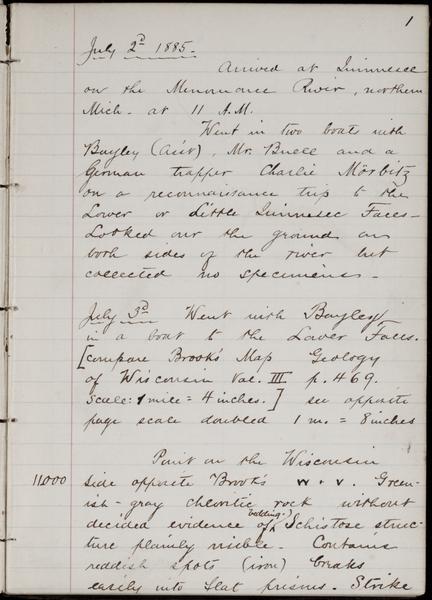 1
July 2d 1885.-
Arrived at Quinnesec
on the Menominee River, northern
Mich. at 11 A.M.
Went in two boats with
Bayley (Ass't), Mr. Buell and a
German trapper Charlie Mörbitz
on a reconnaissance trip to the
Lower or Little Quinnesec Falls-
Looked over the ground on
both sides of the river but
collected no specimens-
July 3d Went with Bayley
in a boat to the Lower Falls.
[compare Brook's Map Geology
of Wisconsin Vol. III p. 469.
Scale: 1 mile = 4 inches.] see opposite
page scale doubled 1 m. = 8 inches
Point on the Wisconsin
11000 side opposite Brook's w + v. Green-
ish-gray chloritic rock without
decided evidence of bedding.) Schistose struc-
ture plainly visible. Contains
reddish spots (iron) breaks
easily into flat prisms. Strike